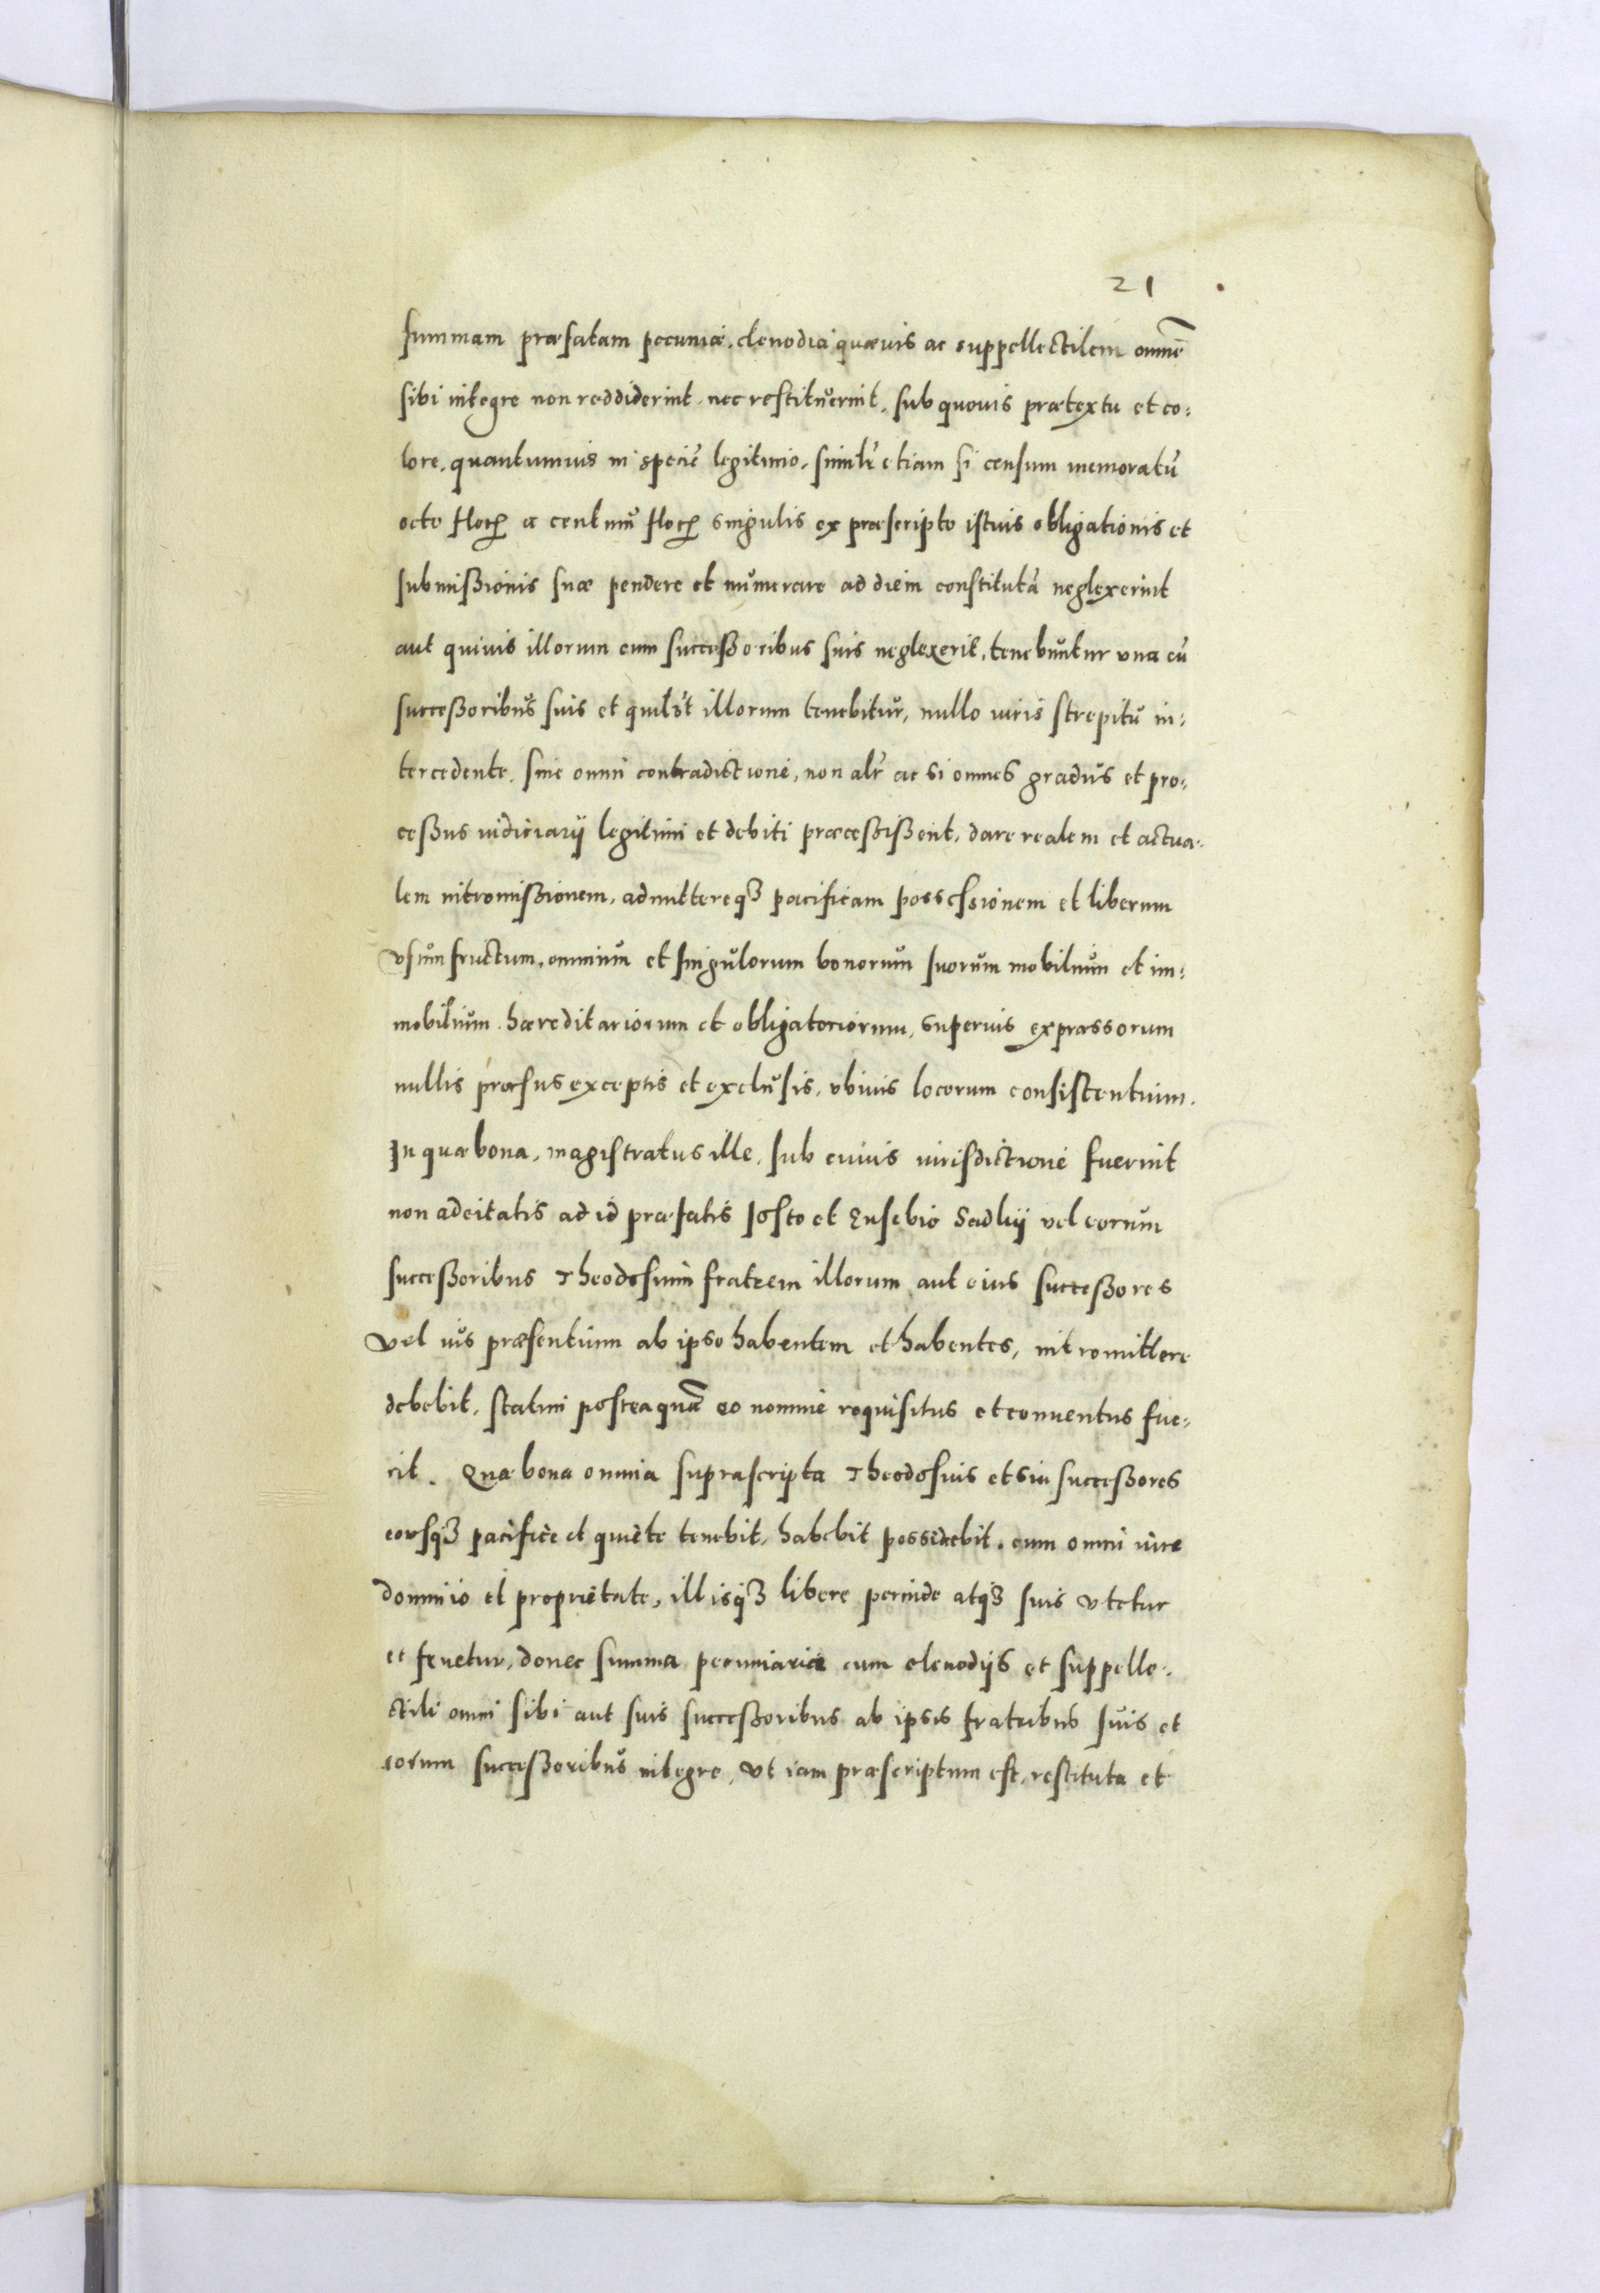 21
summam præfatam pecuniæ, clenodia quævis ac suppellectilem omnē
sibi integre non reddiderint, nec restituerint, sub quovis prætextu et co-
lore, quantumvis in speciē legitimo, similr̃ etiam si censum memoratū
octo floꝝ a centum floꝝ singulis ex præscripto istius obligationis et
submissionis suæ pendere et numerare ad diem constitutā neglexerint
aut quivis illorum cum successoribus suis neglexerit, tenebuntur una cū
successoribus suis et quilꝫt illorum tenebitur, nullo iuris strepitu in-
tercedente, sine omni contradictione, non alr̃ ac si omnes gradus et pro-
cessus iudiciarij legitimi et debiti præcessissent, dare realem et actua-
lem intromissionem, admittereqꝫ pacificam possessionem et liberum
usumfructum, omnium et singulorum bonorum suorum mobilium et im-
mobilium, hæreditariorum et obligatoriorum, superius expressorum
nullis prorsus exceptis et exclusis, ubivis locorum consistentium.
In quæ bona, magistratus ille, sub cuius iurisdictione fuerint
non adcitatis ad id præfatis Josto et Eusebio Sadlij vel eorum
successoribus Theodosium fratrem illorum aut eius successores
vel ius præsentium ab ipso habentem et habentes, intromittere
debebit, statim posteaquā eo nomine requisitus et conventus fue-
rit. Quæ bona omnia suprascripta Theodosius et sui successores
eousqꝫ pacifice et quiete tenebit, habebit possidebit, cum omni iure
dominio et proprietate, illisqꝫ libere perinde atqꝫ suis utetur
et fruetur, donec summa pecuniaria cum clenodijs et suppelle-
ctili omni sibi aut suis successoribus ab ipsis fratribus suis et
eorum successoribus integre, ut iam præscriptum est, restituta et